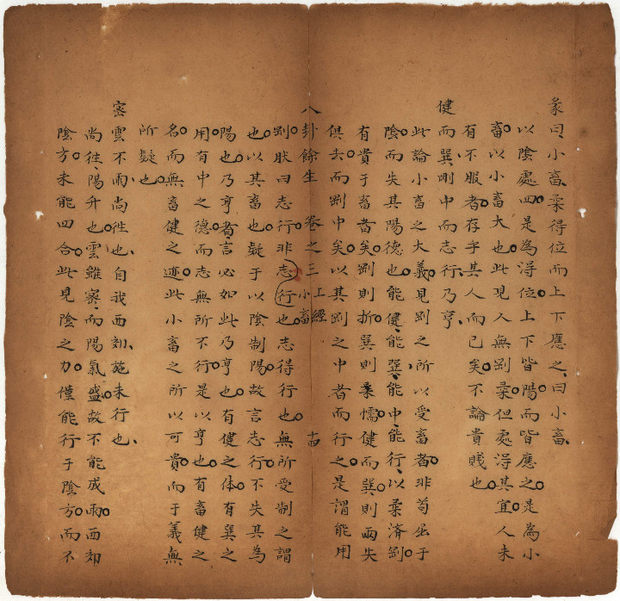 彖曰小畜柔得位而上下應之曰小畜
以陰處四是為得位上下皆陽而皆應之是為小
畜以小畜大也此現人無剛柔但處得其宜人未
有不服者存乎其人而已矣不論貴賤也
健而巽剛中而志行乃亨
此論小畜之大義見剛之所以受畜者非苟屈于
陰而失其陽德也能健能巽能中能行以柔済剛
有貴于畜者矣剛則折巽則柔懦健而巽則兩失
俱去而剛中矣以其剛之中者而行之是謂能用
八卦餘生 卷之三 上經 小畜 十四
剛肰曰志行非志行也志得行也無所受制之謂
也以其畜也疑于以陰制陽故言志行不失其為
陽也乃亨者言必如此乃亨也有健之体有巽之
用有中之德而志無所不行是以亨也有畜健之
名而無畜健之迹此小畜之所以可貴而于義無
所疑也
密雲不雨尚往也自我西郊施未行也
尚往陽升也雲雖密而陽氣盛故不能成雨西郊
陰方未能四合此見陰之力僅能行于陰方而不